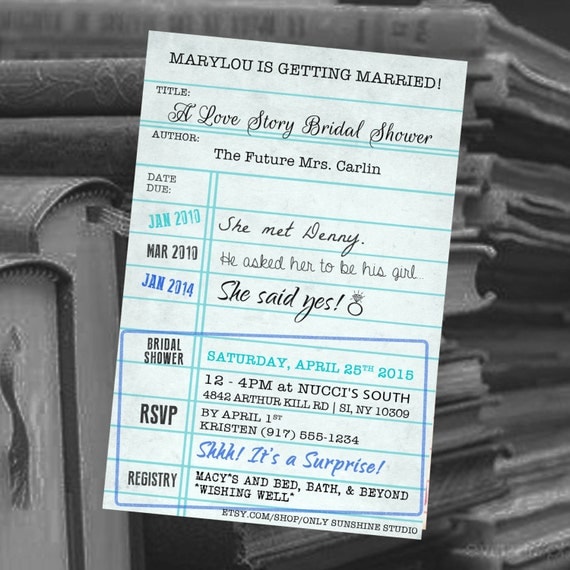 MARYLOU IS GETTING MARRIED!
TITLE:
A Love Story Bridal Shower
AUTHOR:
The Future Mrs. Carlin
DATE
DUE:
JAN 2010
She met Denny.
MAR 2010
He asked her to be his girl...
JAN 2014
She said yes!
BRIDAL
SHOWER
SATURDAY, APRIL 25TH 2015
12 - 4PM at NUCCI'S SOUTH
4842 ARTHUR KILL RD | SI, NY 10309
RSVP
BY APRIL 1ST
KRISTEN (917) 555-1234
Shhh! It's a Surprise!
REGISTRY
MACY*S AND BED, BATH, & BEYOND
*WISHING WELL*
ETSY.COM/SHOP/ONLY SUNSHINE STUDIO